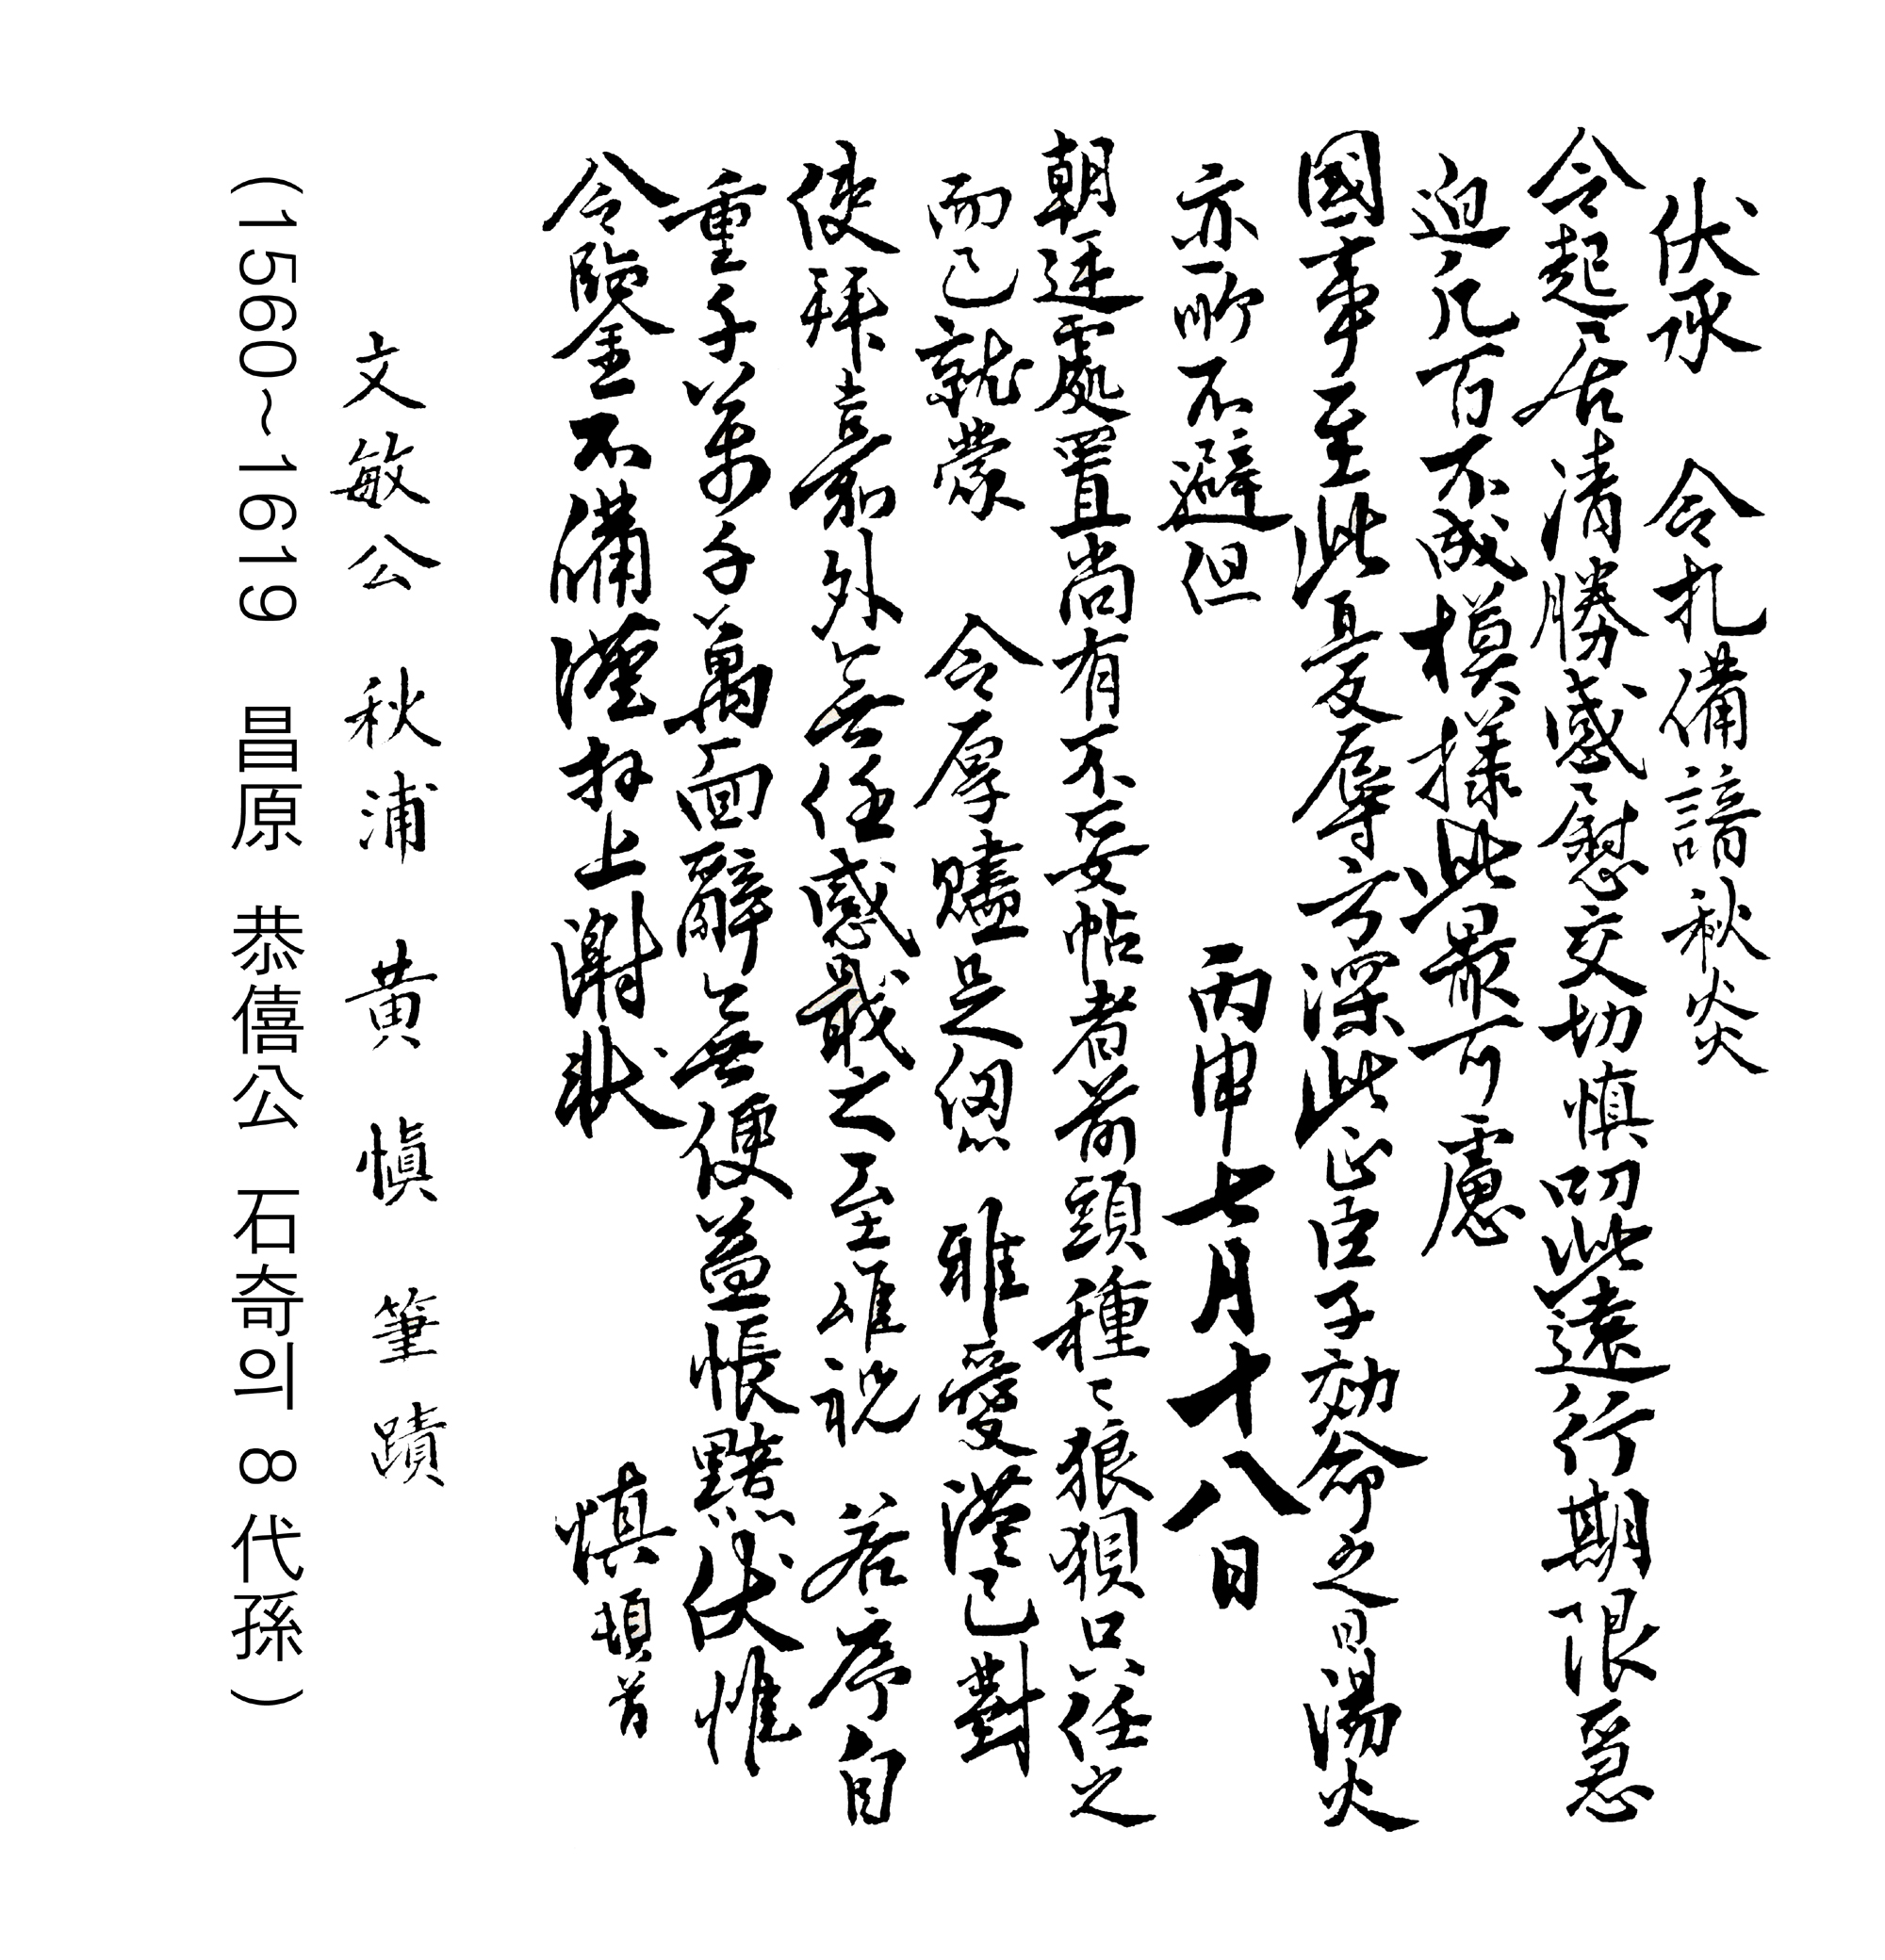 伏承 令札備諳秋炎
令起居清勝感慰交切慎叨此遠行期限急
迫凡百不成模樣此最可慮
國事至此憂辱方深此正臣子效命之日湯火
亦所不避但 丙申七月十八日
朝廷處置尚有不妥帖者前頭種〻狼狽只任之
而已就蒙 令厚贐是悤 雅愛謹已對
使拜嘉外無任感戢之至唯祝 若序自
重千萬千萬面辭無便益悵黯伏惟
令鑒不備謹拜上謝狀 慎頓首
文敏公 秋浦 黄 愼 筆 蹟
(1560~1619 昌原 恭僖公 石奇의 8 代孫)